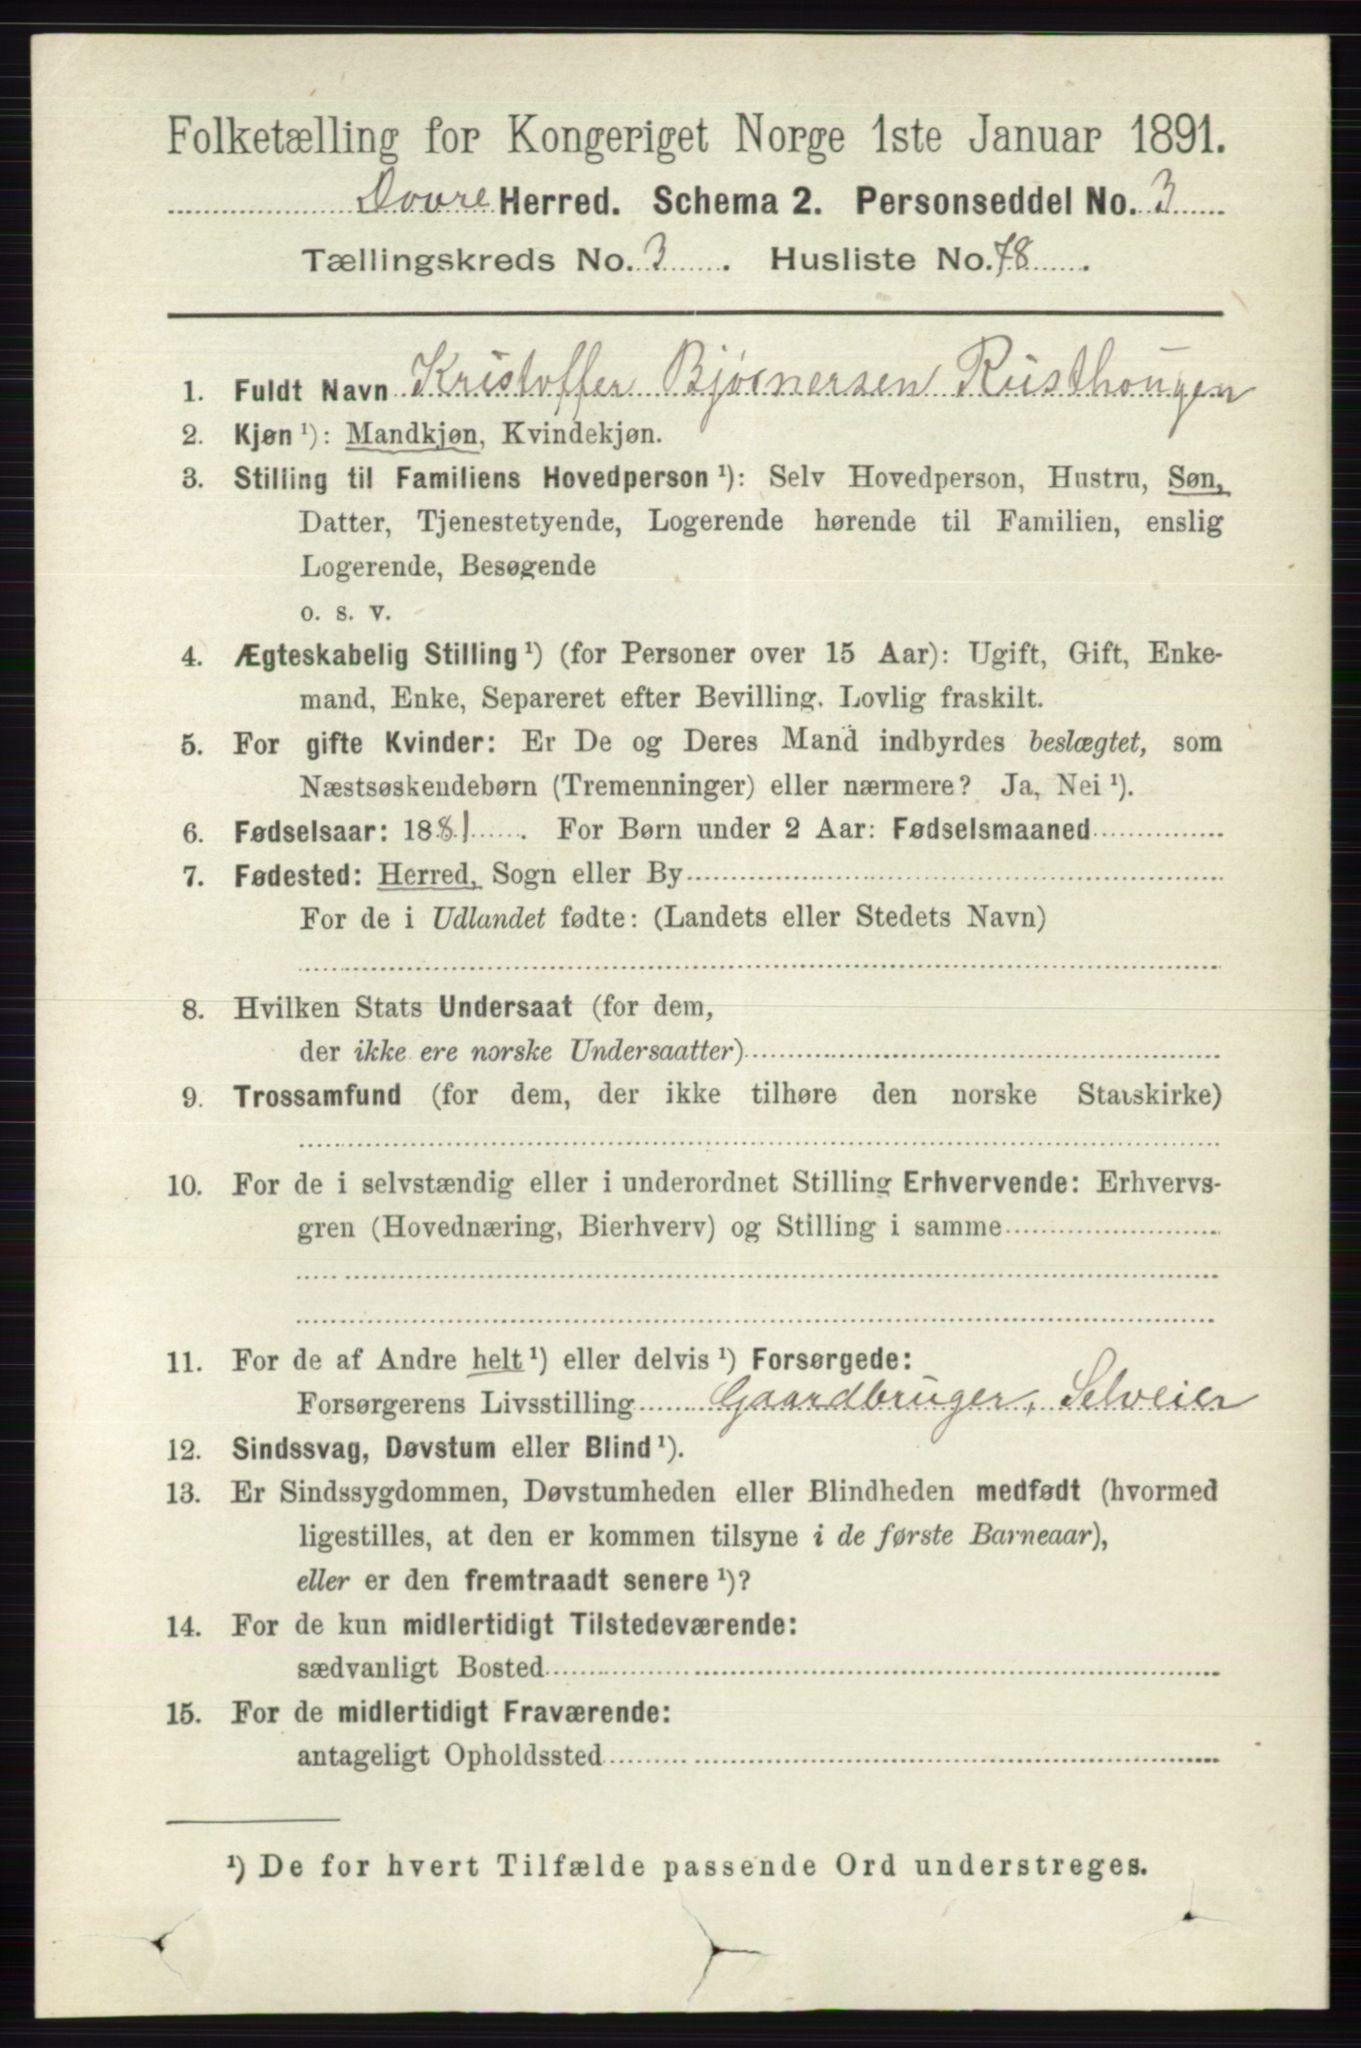 Folketælling for Kongeriget Norge 1ste Januar 1891.
Dovre Herred. Schema 2. Personseddel No. 3
Tællingskreds No. 3. Husliste No. 78.
1. Fuldt Navn Kristoffer Bjørnersen Rusthougen
2. Kjøn ¹): Mandkjøn, Kvindekjøn.
3. Stilling til Familiens Hovedperson ¹): Selv Hovedperson, Hustru, Søn,
Datter, Tjenestetyende, Logerende hørende til Familien, enslig
Logerende, Besøgende
o. s. v.
4. Ægteskabelig Stilling ¹) (for Personer over 15 Aar): Ugift, Gift, Enke-
mand, Enke, Separeret efter Bevilling. Lovlig fraskilt.
5. For gifte Kvinder: Er De og Deres Mand indbyrdes beslægtet, som
Næstsøskendebørn (Tremenninger) eller nærmere? Ja, Nei ¹).
6. Fødselsaar: 1881. For Børn under 2 Aar: Fødselsmaaned
7. Fødested: Herred, Sogn eller By
For de i Udlandet fødte: (Landets eller Stedets Navn)
8. Hvilken Stats Undersaat (for dem,
der ikke ere norske Undersaatter)
9. Trossamfund (for dem, der ikke tilhøre den norske Statskirke)
10. For de i selvstændig eller i underordnet Stilling Erhvervende: Erhvervs-
gren (Hovednæring, Bierhverv) og Stilling i samme
11. For de af Andre helt ¹) eller delvis ¹) Forsørgede:
Forsørgerens Livsstilling Gaardbruger, Selveier
12. Sindssvag, Døvstum eller Blind ¹).
13. Er Sindssygdommen, Døvstumheden eller Blindheden medfødt (hvormed
ligestilles, at den er kommen tilsyne i de første Barneaar),
eller er den fremtraadt senere ¹)?
14. For de kun midlertidigt Tilstedeværende:
sædvanligt Bosted
15. For de midlertidigt Fraværende:
antageligt Opholdssted
¹) De for hvert Tilfælde passende Ord understreges.